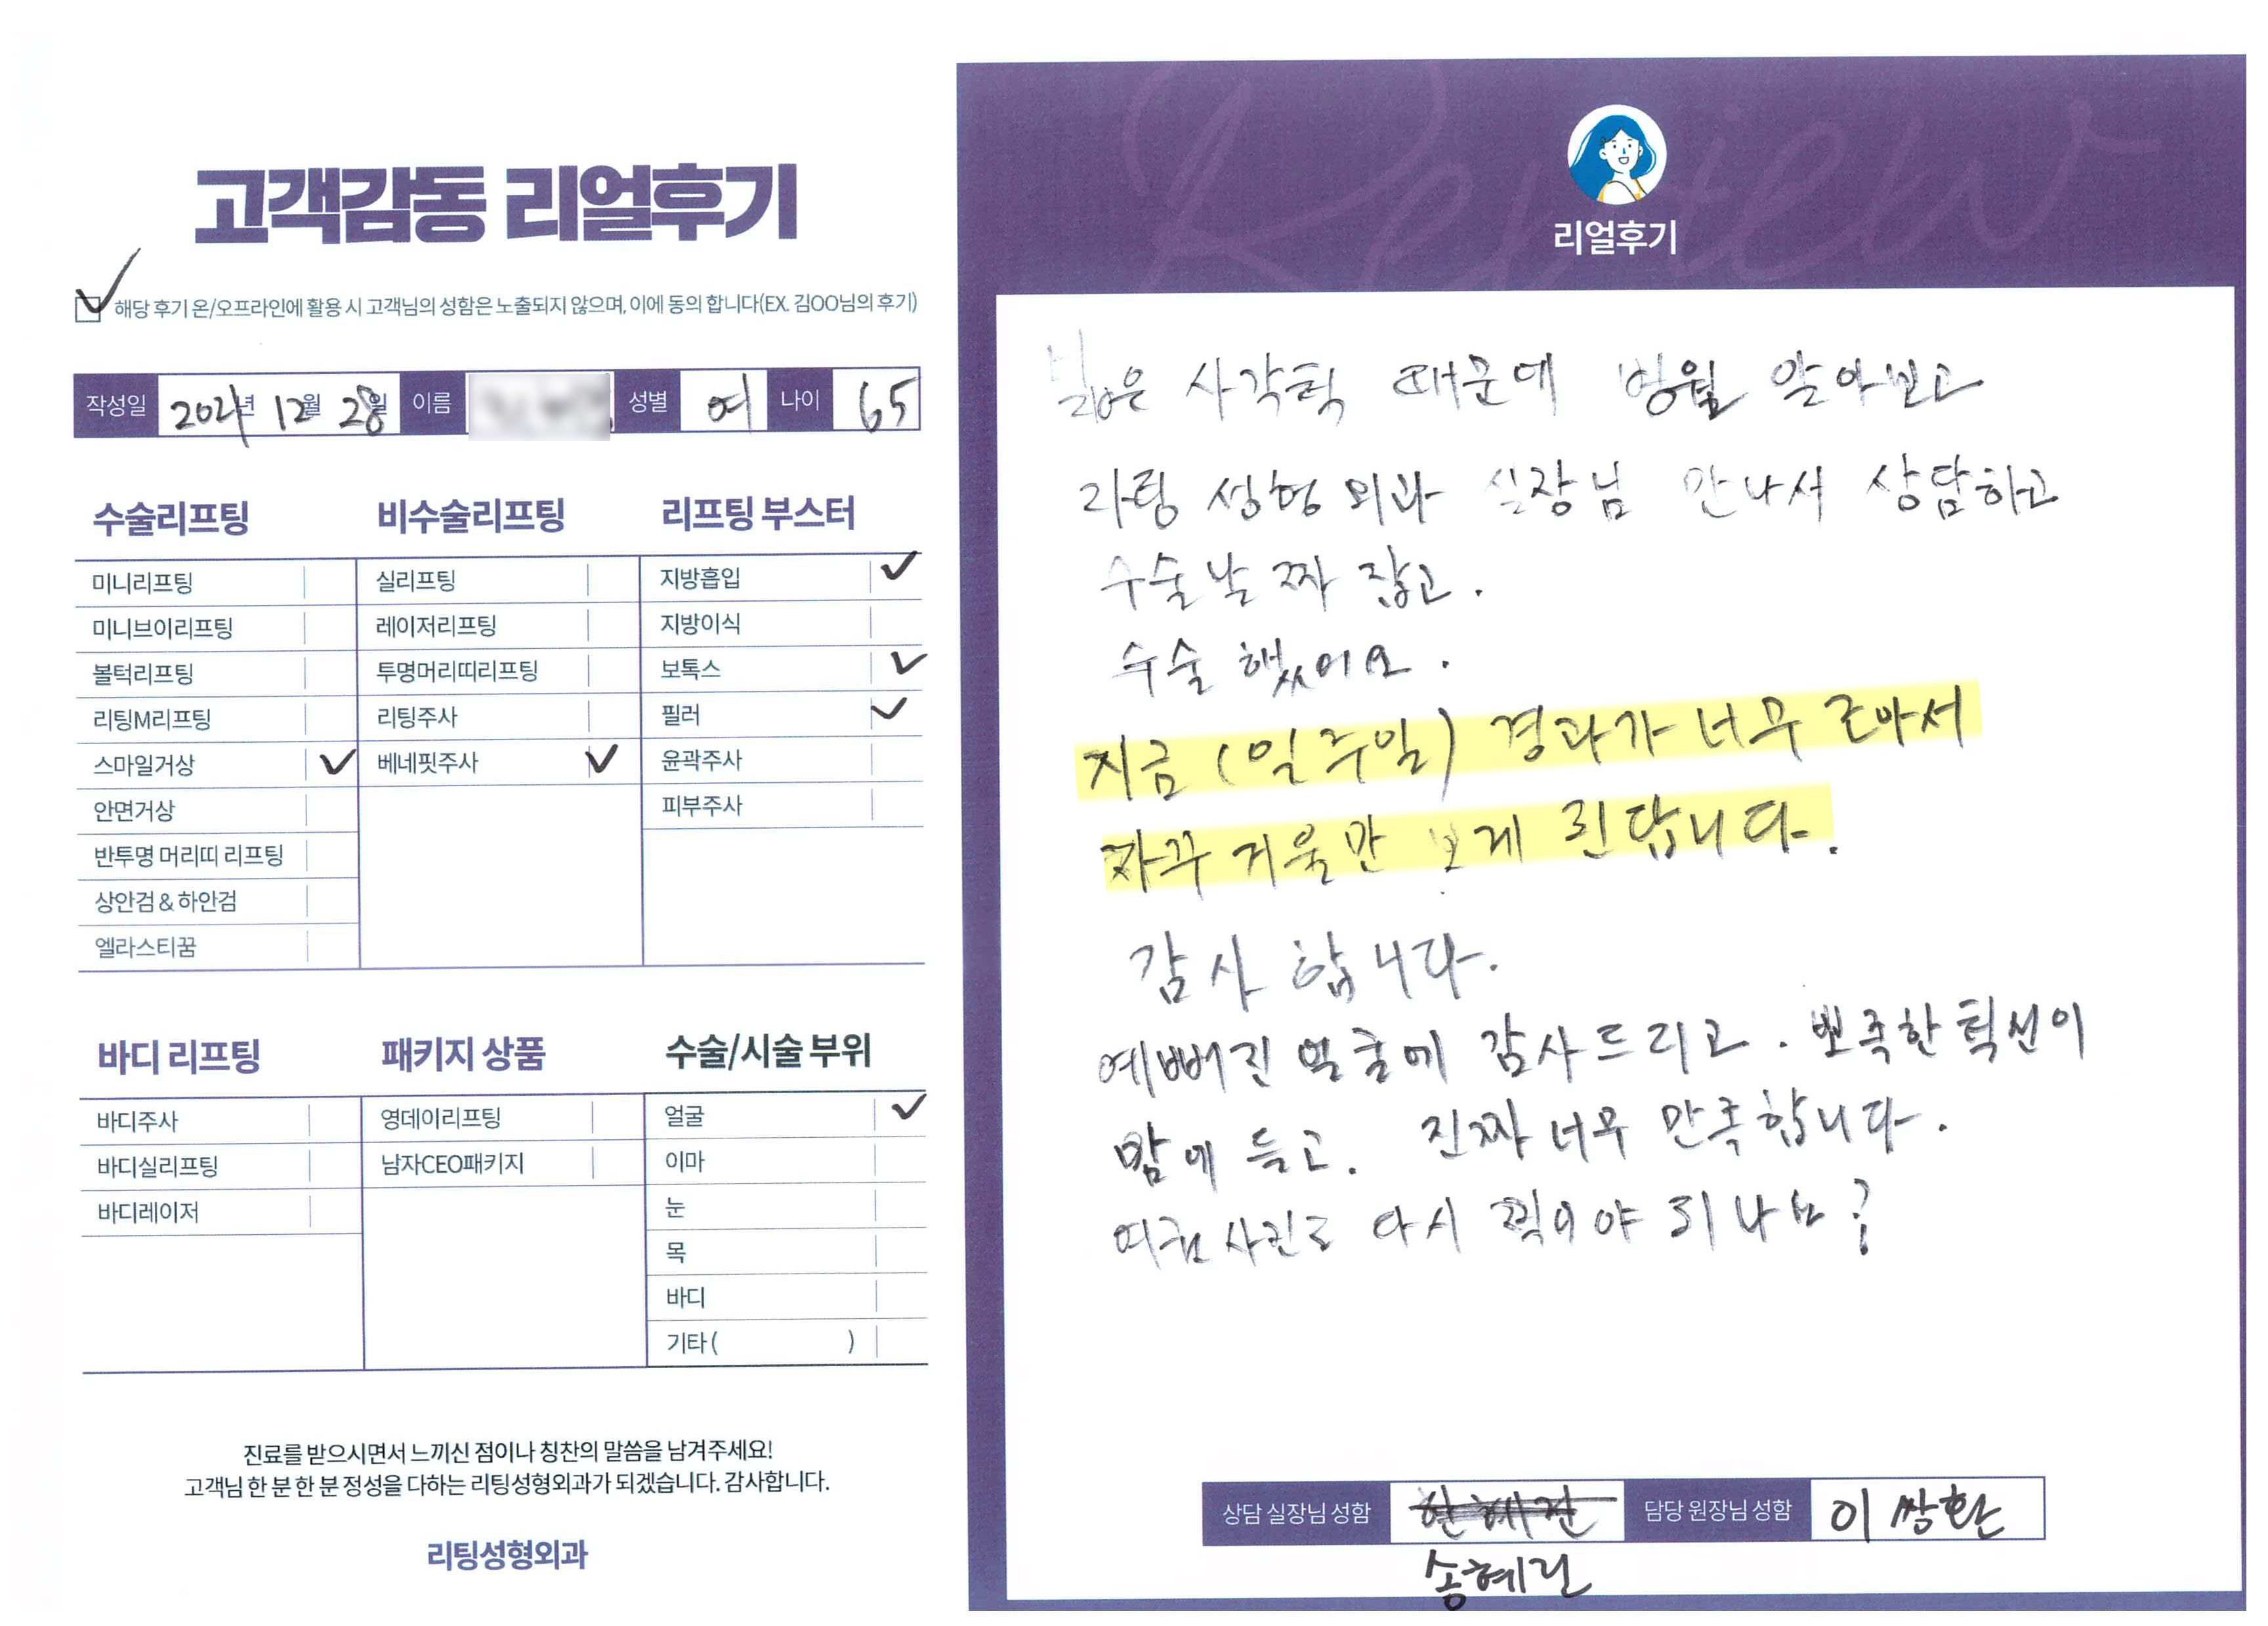 고객감동 리얼후기
해당 후기 온/오프라인에 활용 시 고객님의 성함은 노출되지 않으며, 이에 동의 합니다(EX. 김OO님의 후기)
작성일 2021년 12월 28일 이름 성별 여 나이 65
수술리프팅
미니리프팅
미니브이리프팅
볼턱리프팅
리팅M리프팅
스마일거상 ✓
안면거상
반투명 머리띠 리프팅
상안검 & 하안검
엘라스티꿈
비수술리프팅
실리프팅
레이저리프팅
투명머리띠리프팅
리팅주사
베네핏주사 ✓
리프팅 부스터
지방흡입 ✓
지방이식
보톡스 ✓
필러 ✓
윤곽주사
피부주사
바디 리프팅
바디주사
바디실리프팅
바디레이저
패키지 상품
영데이리프팅
남자CEO패키지
수술/시술 부위
얼굴 ✓
이마
눈
목
바디
기타( )
진료를 받으시면서 느끼신 점이나 칭찬의 말씀을 남겨주세요!
고객님 한 분 한 분 정성을 다하는 리팅성형외과가 되겠습니다. 감사합니다.
리팅성형외과
Review
리얼후기
넓은 사각턱 때문에 병원 알아보고
리팅 성형 외과 실장님 만나서 상담하고
수술날짜 잡고.
수술 했어요.
지금 (일주일) 경과가 너무 좋아서
자꾸 거울만 보게 된답니다.
감사 합니다.
예뻐진 얼굴에 감사드리고. 뾰족한 턱선이
맘에 들고. 진짜 너무 만족합니다.
여권 사진도 다시 찍어야 되나요?
상담 실장님 성함 담당 원장님 성함 이쌍환
송혜린